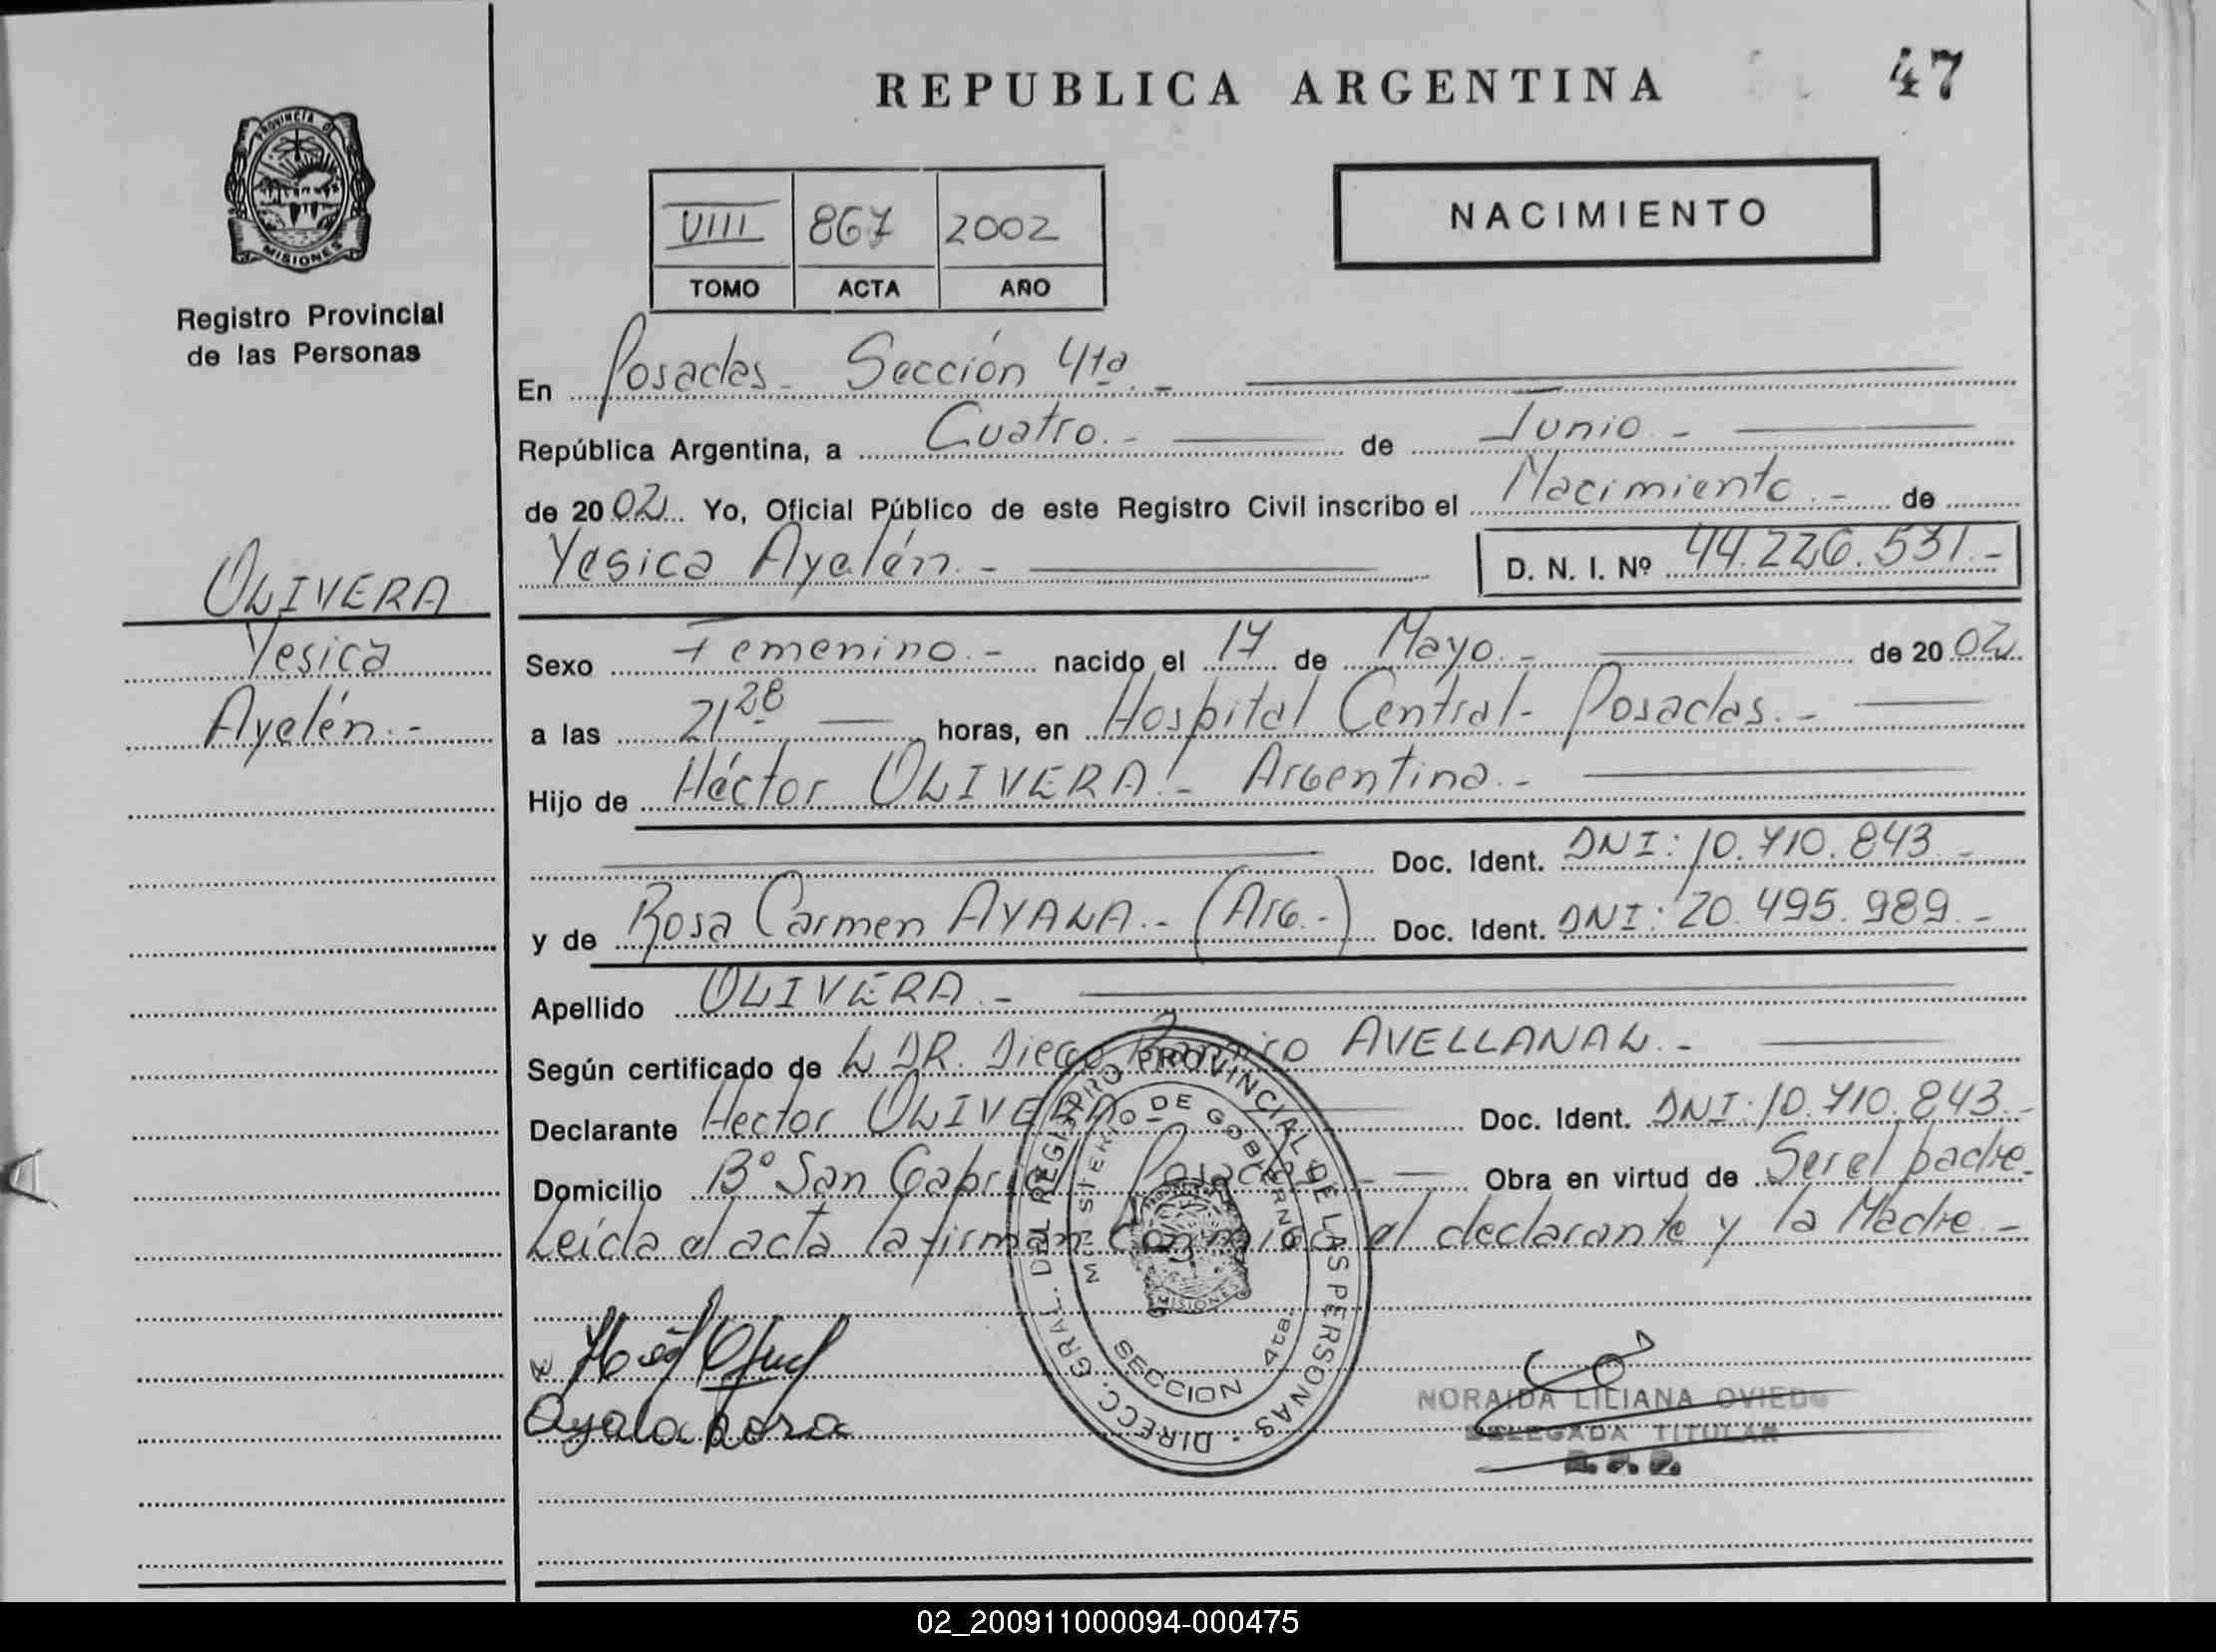 REPUBLICA ARGENTINA
47
PROVINCIA DE
MISIONES
Registro Provincial
de las Personas
VIII 867 2002
TOMO ACTA AÑO
NACIMIENTO
En Posadas - Sección 4ta. -
República Argentina, a Cuatro. - de Junio. -
de 2002. Yo, Oficial Público de este Registro Civil inscribo el Nacimiento. - de
Yesica Ayelén. - D. N. I. Nº 44.226.531. -
OLIVERA
Yesica
Ayelén. -
Sexo Femenino. - nacido el 17 de Mayo. - de 2002
a las 21 28 horas, en Hospital Central - Posadas. -
Hijo de Héctor OLIVERA. - Argentina. -
Doc. Ident. DNI: 10.710.843 -
y de Rosa Carmen AYALA. - (Arg. -) Doc. Ident. DNI: 20.495.989. -
Apellido OLIVERA. -
Según certificado de L DR. Diego Ramiro AVELLANAL. -
Declarante Hector OLIVERA Doc. Ident. DNI: 10.710.843. -
Domicilio Bº San Gabriel Posadas - Obra en virtud de Ser el padre.
Leída el acta la firman Conmigo el declarante y la Madre. -
DIRECC. GRAL. DEL REGISTRO PROVINCIAL DE LAS PERSONAS.
MINISTERIO DE GOBIERNO
MISIONES
SECCION 4ta.
Ayala Rosa
NORAIDA LILIANA OVIEDO
DELEGADA TITULAR
R. P. P.
02_200911000094-000475